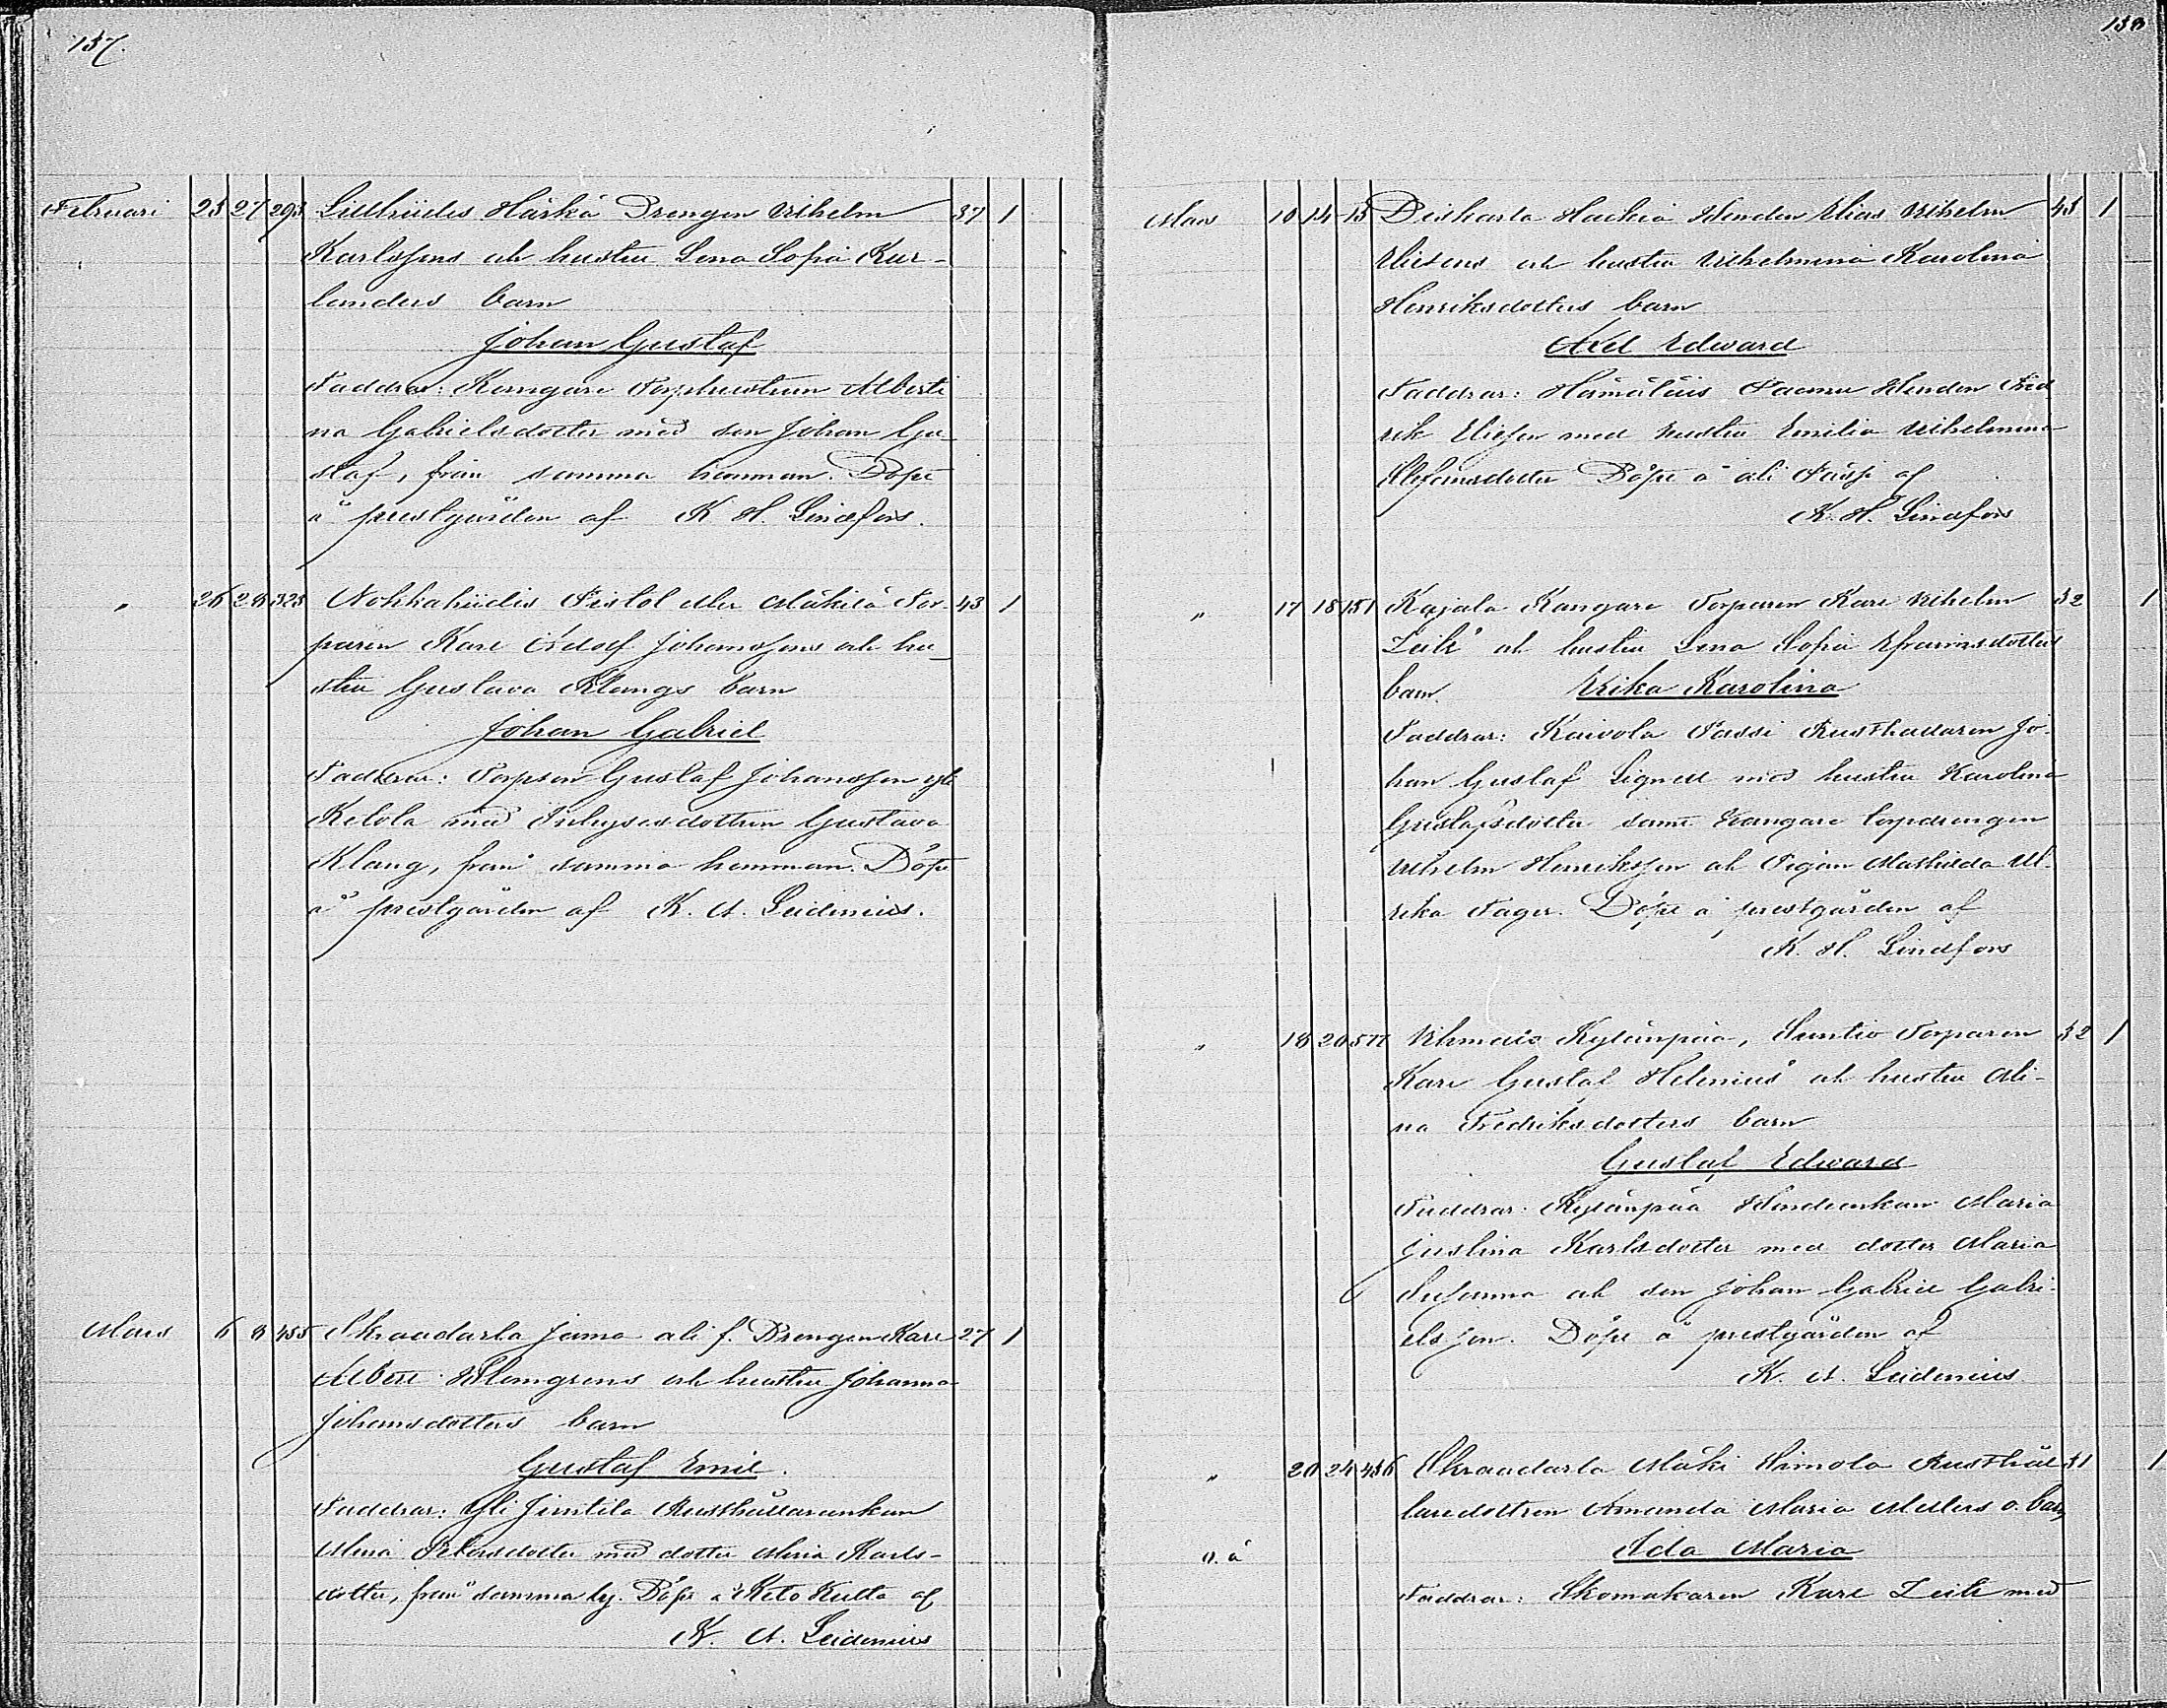 137.
Februari 25 27 293 Lillhiidis Härkä Drengen Vilhelm 37 1
Karlssons och hustru Lena Sofia Kar-
landers barn
Johan Gustaf
Faddrar: Kangare Torphustrun Alberti
na Gabrielsdotter med son Johan Gu-
staf, från samma hemman. Döpt
å prestgården af K. H. Lindfors.
" 26 28 323 Nokkahiidis Pistol eller Mäkilä Tor- 43 1
paren Karl Adolf Johanssons och hu-
stru Gustava Klangs barn
Johan Gabriel
Faddrar: Torpson Gustaf Johansson yli
Ketola med Inhysesdottren Gustava
Klang, från samma hemman. Döpt
å prestgården af K. A. Leidenius.
Mars 6 8 455 Skraadarla Jama ali f. Drengen Karl 27 1
Albert Holmgrens och hustru Johanna
Johansdotters barn
Gustaf Emil.
Faddrar: Yli Jimtila Rusthållarenkan
Maria dotter med dotter Maria Karls-
dotter, från samma by. Döpt å Keto Kulta af
K. A. Leidenius
138
Mars 10 14 15 Deikarla Hackia Bonden Elias Vilhelm 43 1
Eliesens och hustru Vilhelmina Karolina
Henriksdotters barn
Axel Edward
Faddrar: Hämäläis Paenu Bonden Fred
rik Eliesen med hustru Emilia Vilhelmina
dotter Döpt å ali Pärsi af
K. H. Lindfors
" 17 18 151 Kajala Kangare Torparen Karl Vilhelm 32 1
Leik och hustru Lena Sofia Efraimsdotters
barn. Erika Karolina
Faddrar: Kaivola Passi Rusthållaren Jo-
han Gustaf Lignell med hustru Karolina
Gustafsdotter samt Kangare torpdrengen
Vilhelm Henriksson och Pigan Mathilda Ul-
rika Fager. Döpt å prestgården af
K. H. Lindfors
" 18 20 577 Uhmais Kylänpää, Suntio Torparen 32 1
Karl Gustaf Helenius och hustru Ali-
na Fredriksdotters barn
Gustaf Edward
Faddrar: Kylänpää Bondenkan Maria
Justina Karlsdotter med dotter Maria
Susanna och son Johan Gabriel Gabri-
elsson. Döpt å prestgården af
K. A. Leidenius
" 20 24 456 Skraadarla Mäki Simola Rusthål- 31 1
laredottren Amanda Maria o. barn
o. ä. Ida Maria
Faddrar: Skomakaren Karl Leik med